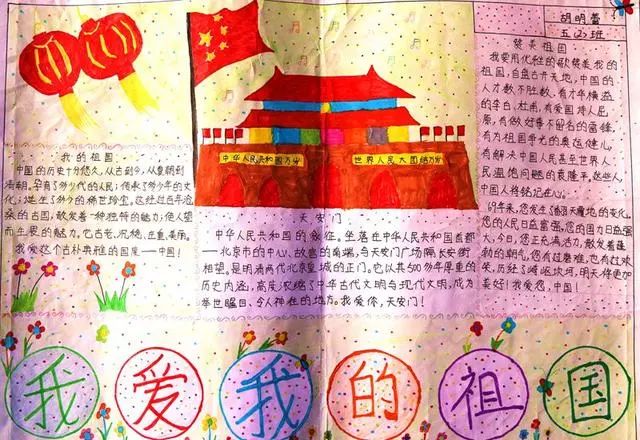 胡明蕾
五(2)班
中华人民共和国万岁
世界人民大团结万岁
我的祖国
中国的历史十分悠久,从古到今,从夏朝到
清朝,孕育了多少代的人民;传承了多少年的文
化;诞生了多少的稀世珍宝。这经过百年沧
桑的古国,散发着一种独特的魅力;使人望
而生畏的魅力。它古老、沉稳、庄重、美丽。
我爱这个古朴典雅的国度——中国!
天安门
中华人民共和国的象征。坐落在中华人民共和国首都
—北京市的中心、故宫的南端,与天安门广场隔长安街
相望。是明清两代北京皇城的正门。它以其500多年厚重的
历史内涵,高度浓缩了中华古代文明与现代文明,成为
举世瞩目、令人神往的地方。我爱你,天安门!
赞美祖国
我要用优雅的歌赞美我的
祖国,自盘古开天地,中国的
人才数不胜数,有才华横溢
的李白、杜甫,有爱国诗人屈
原,有做好事不留名的雷锋,
有为祖国争光的奥运健儿,
有解决中国人民甚至世界人
民温饱问题的袁隆平,这些人,
中国人将铭记在心。
69年来,您发生了翻天覆地的变化。
您的人民日益富裕,您的国力日益强
大,今日,您正充满活力,散发着蓬
勃的朝气。您有过磨难,也有过欢
笑,历经了崎岖坎坷,明天伴更加
美好!我爱您,中国!
我爱我的祖国